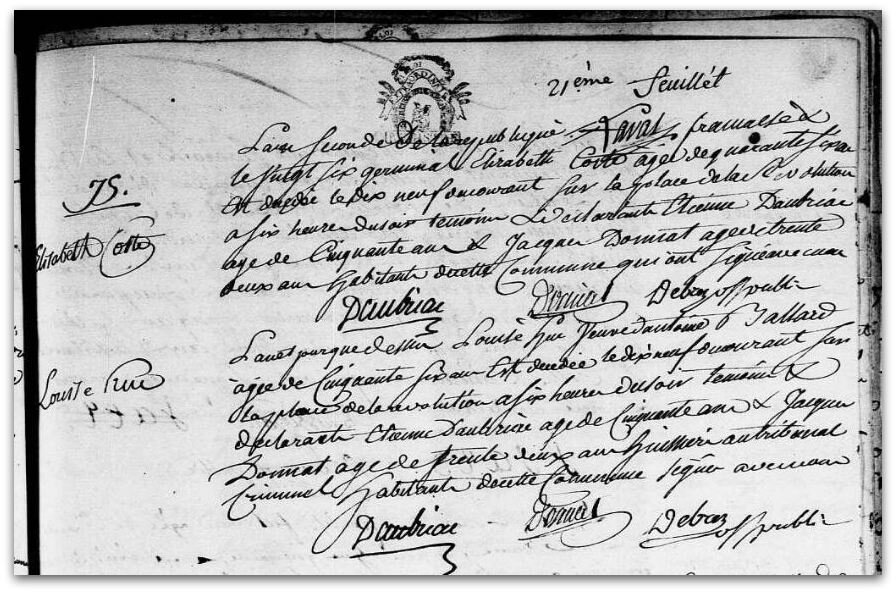 21ème feuillet
L'an second de la republique francaise &
le vingt six germinal Elizabeth Coste agée de quarante six an
Est decedée le dix neuf du courant sur la place de la Revolution
a six heure du soir temoins & declarants Etienne Daubriac
age de Cinquante ans & Jacques Donnat age de trente
deux ans habitants de cette Commune qui ont signé avec nous
Daubriac Donnat Debaz off publi
75.
Elisabeth Coste
L'an et jour que dessus Louise Huc Veuve d'antoine Ballard
agée de Cinquante six ans Est decedée le dix neuf du courant sur
la place de la revolution a six heure du soir temoins &
declarants Etienne Daubriac age de Cinquante ans & Jacques
Donnat age de trente deux ans huissier au tribunal
Criminel habitants de cette Commune signés avec nous
Daubriac Donnat Debaz off publi
Louise Huc